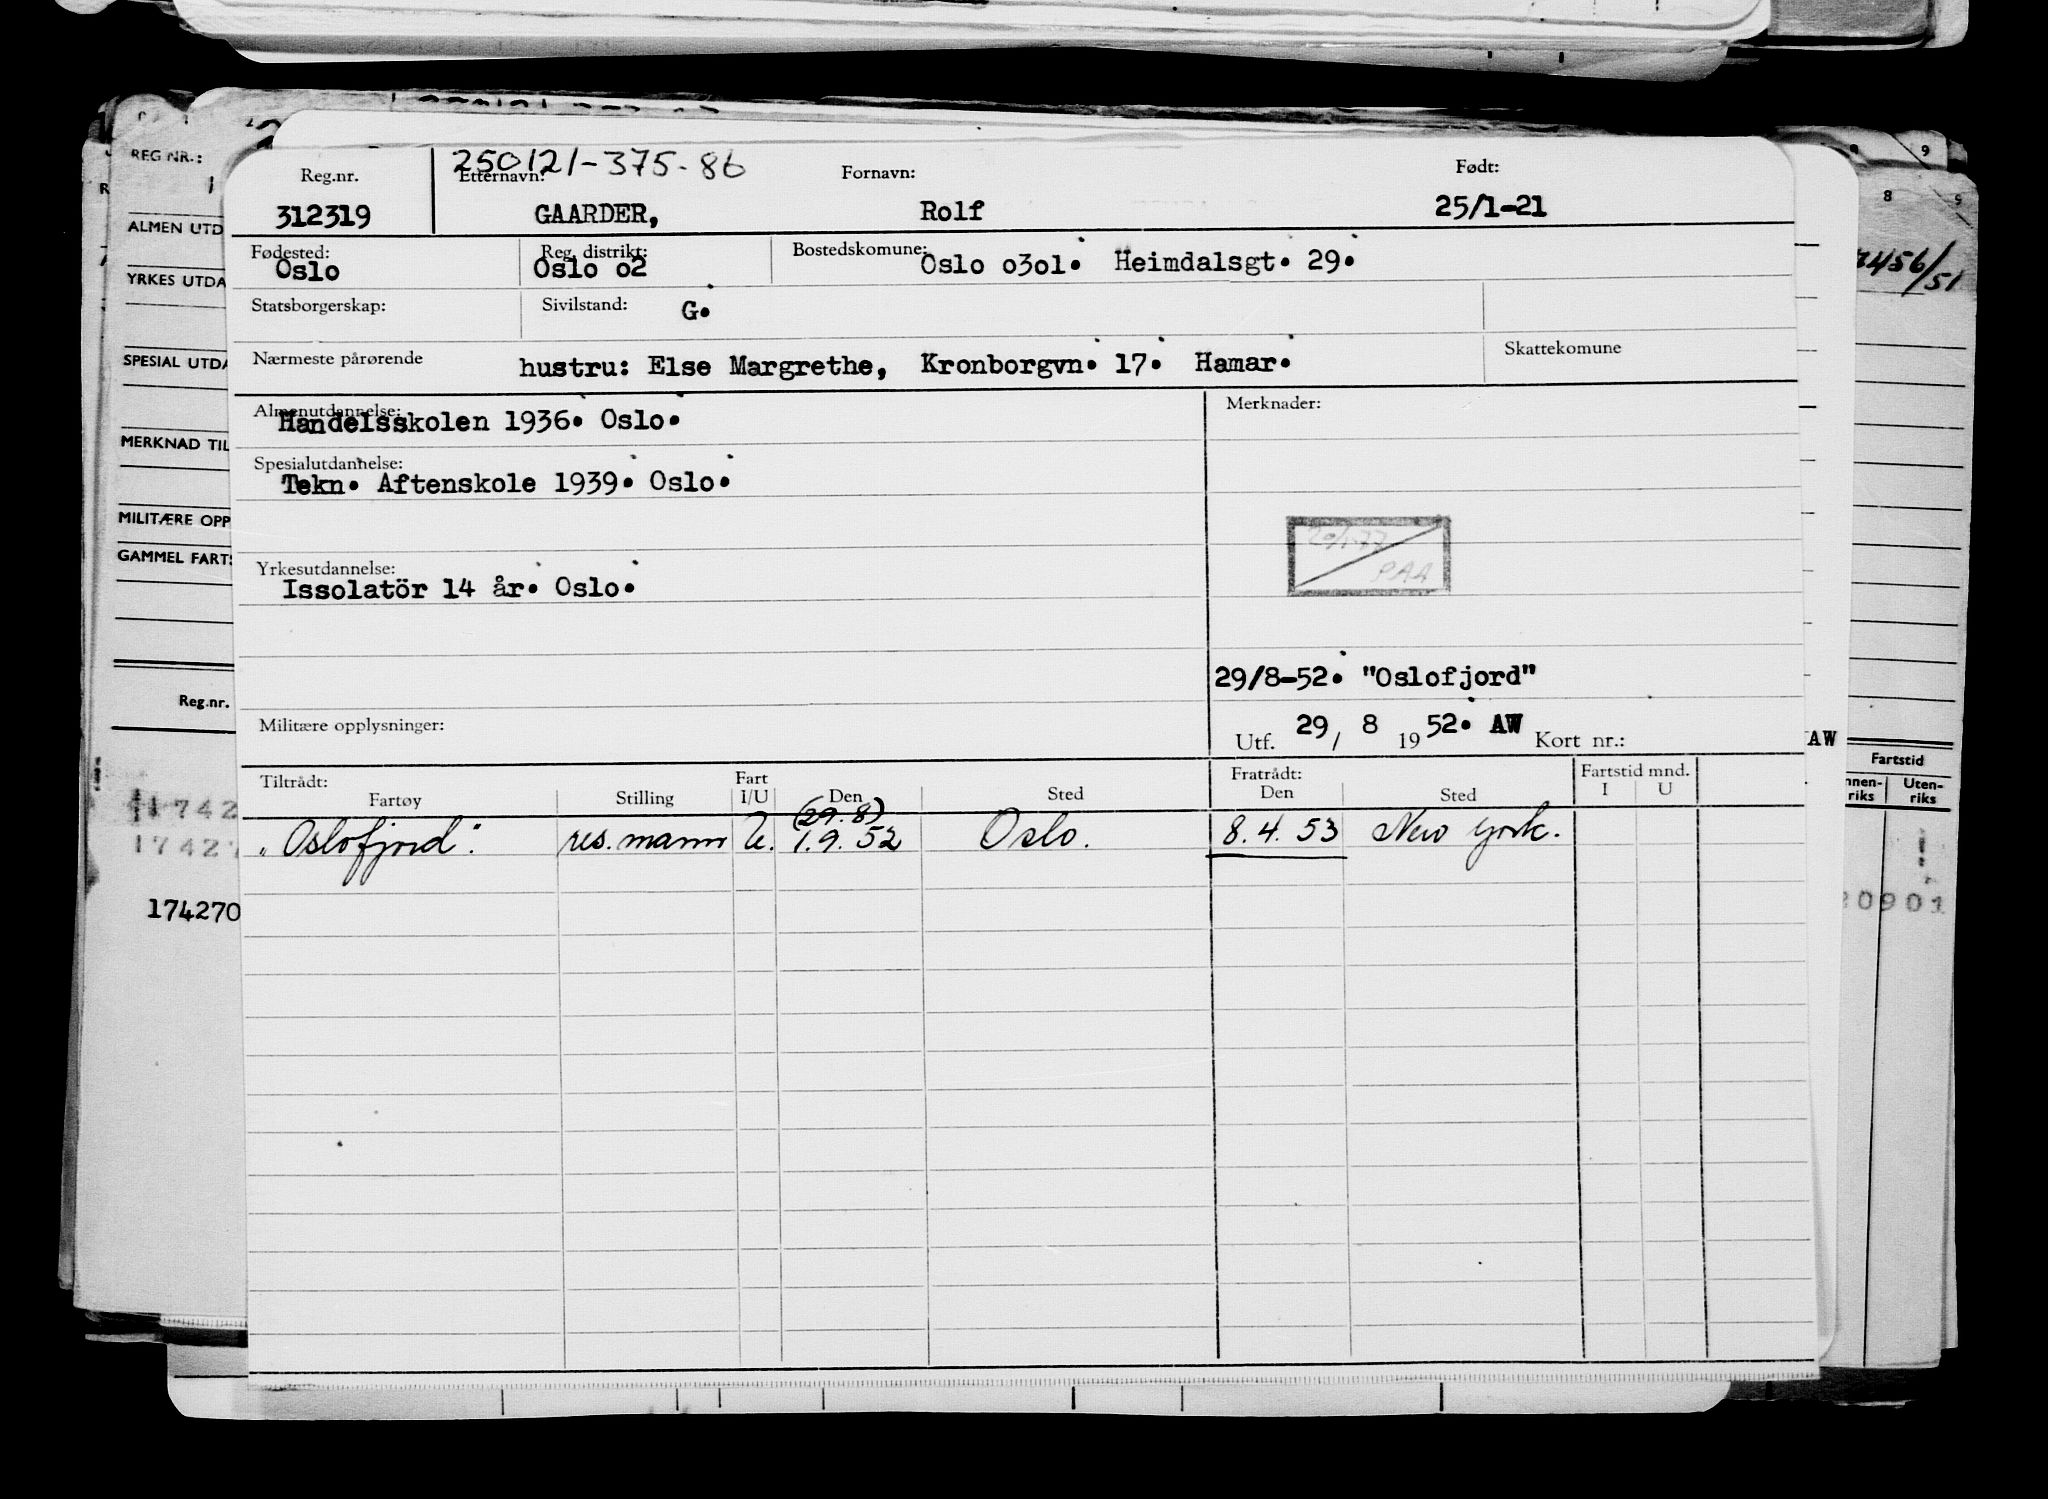 REG NR.:
ALMEN UTD
YRKES UTDA
SPESIAL UTDA
MERKNAD TIL
MILITÆRE OPP
GAMMEL FARTS
Reg.nr.
174270
250121-375-86
Reg.nr. Etternavn: Fornavn: Født:
312319 GAARDER, Rolf 25/1-21
Fødested: Reg. distrikt: Bostedskomune:
Oslo Oslo o2 Oslo o3o1. Heimdalsgt. 29.
Statsborgerskap: Sivilstand: G.
Nærmeste pårørende hustru: Else Margrethe, Kronborgvn. 17. Hamar. Skattekomune
Almenutdannelse: Merknader:
Handelsskolen 1936. Oslo.
Spesialutdannelse:
Tekn. Aftenskole 1939. Oslo.
PAA
Yrkesutdannelse:
Issolatör 14 år. Oslo.
29/8-52. "Oslofjord"
Militære opplysninger: Utf. 29/ 8 19 52. AW Kort nr.:
Tiltrådt: Fratrådt: Fartstid mnd.
Fartøy Stilling Fart I/U Den Sted Den Sted I U
(29.8)
"Oslofjord". res. mann U. 1.9.52 Oslo. 8.4.53 New York.
8 9
2456/51
AW
Fartstid
Innen-riks Uten-riks
20901